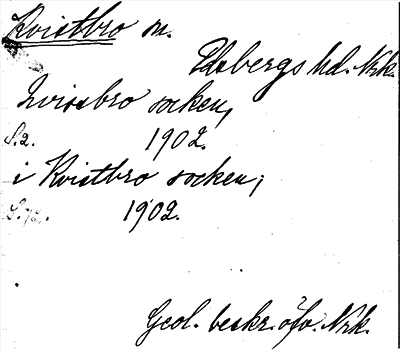 Kvistbro sn.
Edsbergs hd. Nrk.
Qvissbro socken,
S. 2. 1902.
i Kvistbro socken;
S. 72. 1902.
Geol. beskr. öfv. Nrk.